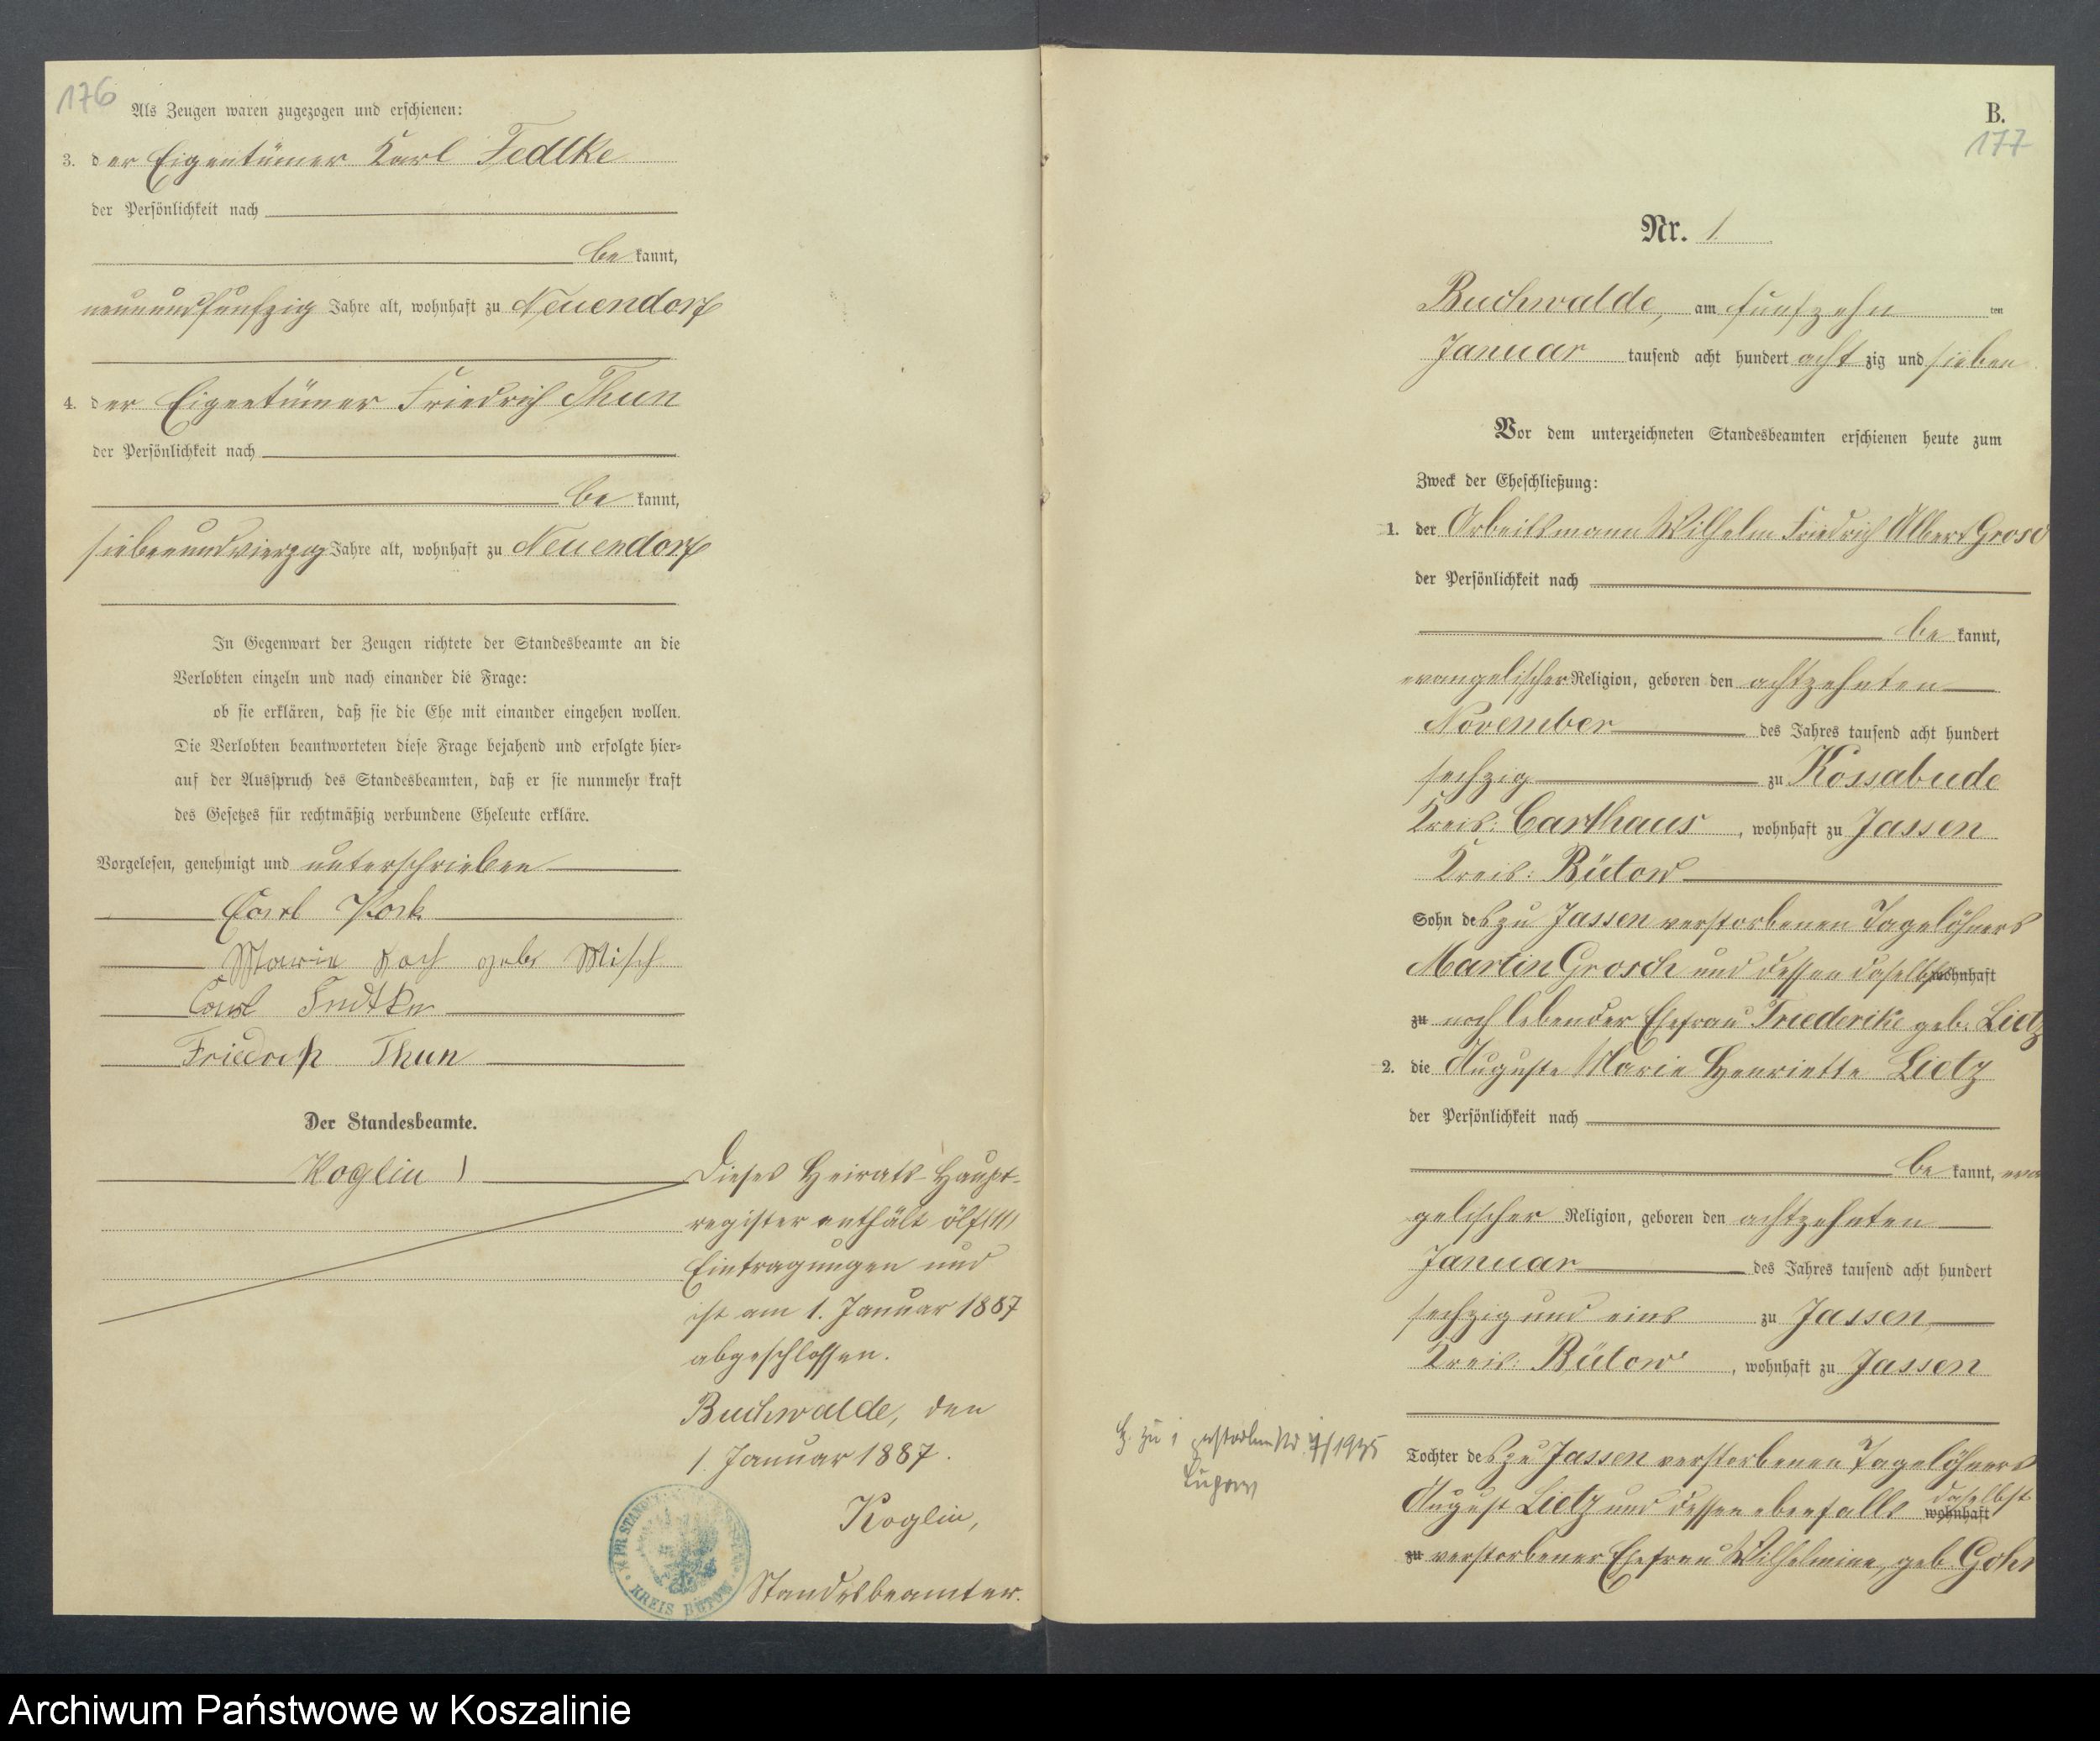 176
Als Zeugen waren zugezogen und erschienen:
3. der Eigentümer Karl Fedtke
der Persönlichkeit nach
bekannt,
neunundfünfzig Jahre alt, wohnhaft zu Neuendorf
4. der Eigentümer Friedrich Thun
der Persönlichkeit nach
bekannt,
siebenundvierzig Jahre alt, wohnhaft zu Neuendorf
In Gegenwart der Zeugen richtete der Standesbeamte an die
Verlobten einzeln und nach einander die Frage:
ob sie erklären, daß sie die Ehe mit einander eingehen wollen.
Die Verlobten beantworteten diese Frage bejahend und erfolgte hier-
auf der Ausspruch des Standesbeamten, daß er sie nunmehr kraft
des Gesetzes für rechtmäßig verbundene Eheleute erkläre.
Vorgelesen, genehmigt und unterschrieben
Carl
Marie Koch geb. Misch
Carl Fedtke
Friedrich Thun
Der Standesbeamte.
Koglin
Dieses Heirats-Haupt-
register enthält ölf (11)
Eintragungen und
ist am 1. Januar 1887
abgeschlossen.
Buchwalde, den
1. Januar 1887.
Koglin,
Standesbeamter.
KREIS BÜTOW
B.
177
Nr. 1
Buchwalde, am fünfzehn ten
Januar tausend acht hundert achtzig und sieben
Vor dem unterzeichneten Standesbeamten erschienen heute zum
Zweck der Eheschließung:
1. der Arbeitsmann Wilhelm Friedrich Albert Grosc
der Persönlichkeit nach
bekannt,
evangelischer Religion, geboren den achtzehnten
November des Jahres tausend acht hundert
sechzig zu Kossabude
Kreis: Carthaus, wohnhaft zu Jassen
Kreis: Bütow
Sohn des zu Jassen verstorbenen Tagelöhners
Martin Grosch und dessen daselbst wohnhaft
zu noch lebender Ehefrau Friederike geb. Lietz
2. die Auguste Marie Henriette Lietz
der Persönlichkeit nach
bekannt, evan
gelischer Religion, geboren den achtzehnten
Januar des Jahres tausend acht hundert
sechzig und eins zu Jassen
Kreis: Bütow, wohnhaft zu Jassen
zu 1 verstorben Nr. 7/1935
Lupow
Tochter des zu Jassen verstorbenen Tagelöhners
August Lietz und dessen ebenfalls daselbst wohnhaft
zu verstorbener Ehefrau Wilhelmine, geb. Gohr
Archiwum Państwowe w Koszalinie